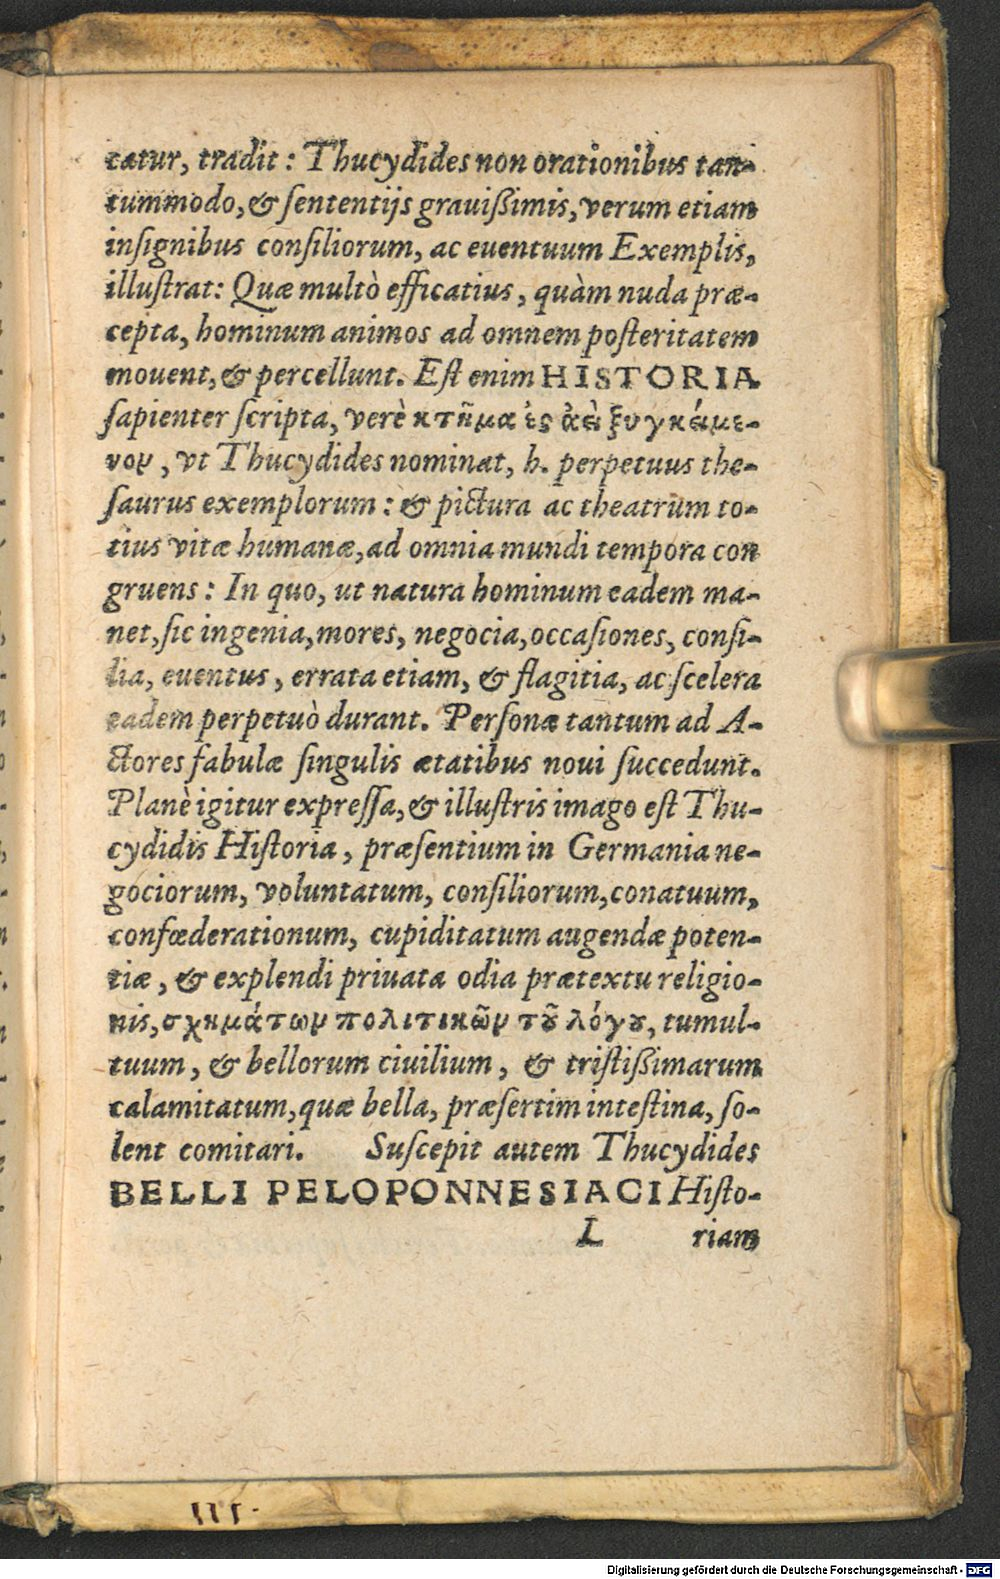 tatur, tradit: Thucydides non orationibus tan-
tummodo, & sententijs grauißimis, verum etiam
insignibus consiliorum, ac euentuum Exemplis,
illustrat: Quæ multò efficatius, quàm nuda præ-
cepta, hominum animos ad omnem posteritatem
mouent, & percellunt. Est enim HISTORIA
sapienter scripta, verè κτῆμα ἐς ἀεὶ ξυγκείμε-
νον, vt Thucydides nominat, h. perpetuus the-
saurus exemplorum: & pictura ac theatrum to-
tius vitæ humanæ, ad omnia mundi tempora con
gruens: In quo, ut natura hominum eadem ma-
net, sic ingenia, mores, negocia, occasiones, consi-
lia, euentus, errata etiam, & flagitia, ac scelera
eadem perpetuò durant. Personæ tantum ad A-
ctores fabulæ singulis ætatibus noui succedunt.
Planè igitur expressa, & illustris imago est Thu-
cydidis Historia, præsentium in Germania ne-
gociorum, voluntatum, consiliorum, conatuum,
confœderationum, cupiditatum augendæ poten-
tiæ, & explendi priuata odia prætextu religio-
nis, σχημάτων πολιτικῶν τοῦ λόγου, tumul-
tuum, & bellorum ciuilium, & tristißimarum
calamitatum, quæ bella, præsertim intestina, so-
lent comitari. Suscepit autem Thucydides
BELLI PELOPONNESIACI Histo-
L riam
Digitalisierung gefördert durch die Deutsche Forschungsgemeinschaft - DFG